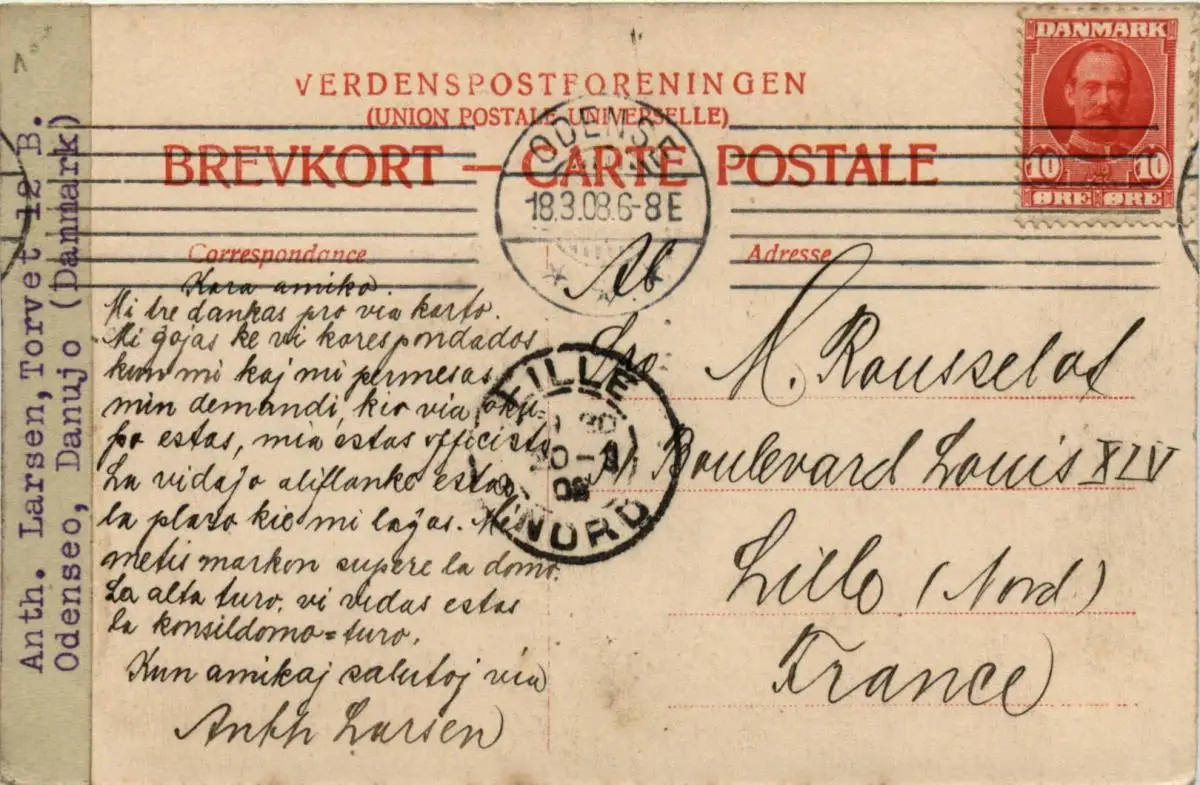 Anth. Larsen, Torvet 12 B.
Odenseo, Danujo (Danmark)
VERDENSPOSTFORENINGEN
(UNION POSTALE UNIVERSELLE)
BREVKORT — CARTE POSTALE
DANMARK
10 10
ØRE ØRE
ODENSE
18.3.08.6-8E
Correspondance
Kara amiko.
Mi tre dankas pro via karto.
Mi ĝojas ke vi korespondados
kun mi kaj mi permesas
min demandi, kio via oku-
po estas, mia estas officisto
La vidaĵo aliflanke estas
la plazo kie mi loĝas. Mi
metis markon supere la domo.
La alta turo, vi vidas estas
la konsildomo=turo.
Kun amikaj salutoj via
Anth Larsen
Adresse
Sro M. Rousselot
Boulevard Louis XIV
Lille (Nord)
France
LILLE
NORD